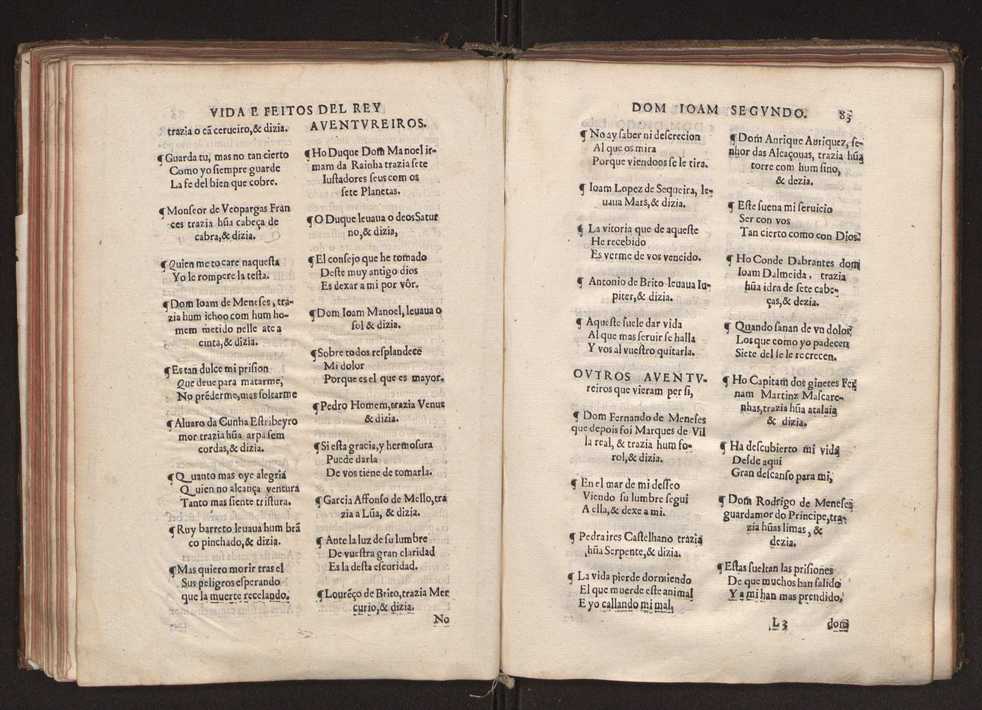 VIDA E FEITOS DEL REY
trazia o cã cerueiro,& dizia.
¶Guarda tu, mas no tan cierto
Como yo siempre guarde
La fe del bien que cobre.
¶Monseor de Veopargas Fran
ces trazia hũa cabeça de
cabra,& dizia.
¶Quien me tocare naquesta
Yo le rompere la testa.
¶Dom Ioam de Meneses, tra-
zia hum ichoo com hum ho-
mem metido nelle ate a
cinta,& dizia.
¶Es tan dulce mi prision
Que deue para matarme,
No prẽderme,mas soltarme
¶Aluaro da Cunha Estribeyro
mor trazia hũa arpa sem
cordas,& dizia.
¶Quanto mas oye alegria
Quien no alcança ventura
Tanto mas siente tristura.
¶Ruy barreto leuaua hum brã
co pinchado,& dizia.
¶Mas quiero morir tras el
Sus peligros esperando
que la muerte recelando.
AVENTVREIROS.
¶Ho Duque Dom Manoel ir-
mam da Rainha trazia sete
Iustadores seus com os
sete Planetas.
¶O Duque leuaua o deos Satur
no,& dizia,
¶El consejo que he tomado
Deste muy antigo dios
Es dexar a mi por vôr.
¶Dom Ioam Manoel, leuaua o
sol & dizia.
¶Sobre todos resplandece
Mi dolor
Porque es el que es mayor.
¶Pedro Homem, trazia Venus
& dizia.
¶Si esta gracia,y hermosura
Puede darla
De vos tiene de tomarla.
¶Garcia Affonso de Mello, tra
zia a Lũa, & dizia.
¶Ante la luz de su lumbre
De vuestra gran claridad
Es la desta escuridad.
¶Lourẽço de Brito, trazia Mer
curio,& dizia.
No
DOM IOAM SEGVNDO. 83
¶No ay saber ni descrecion
Al que os mira
Porque viendoos se le tira.
¶Ioam Lopez de Sequeira, le-
uaua Mars,& dizia.
¶La vitoria que de aqueste
He recebido
Es verme de vos vencido.
¶Antonio de Brito leuaua Iu-
piter,& dizia.
¶Aqueste suele dar vida
Al que mas seruir se halla
Y vos al vuestro quitarla.
OVTROS AVENTV-
reiros que vieram per si,
¶Dom Fernando de Meneses
que depois foi Marques de Vil
la real, & trazia hum fo-
rol,& dizia.
¶En el mar de mi desseo
Viendo su lumbre segui
A ella,& dexe a mi.
¶Pedraires Castelhano trazia
hũa Serpente,& dizia.
¶La vida pierde dormiendo
El que muerde este animal
E yo callando mi mal,
¶Dom Anrique Anriquez, se-
nhor das Alcaçouas, trazia hũa
torre com hum sino,
& dezia.
¶Este suena mi seruicio
Ser con vos
Tan cierto como con Dios.
¶Ho Conde Dabrantes dom
Ioam Dalmeida, trazia
hũa idra de sete cabe-
ças,& dezia.
¶Quando sanan de vn dolor
Los que como yo padecen
Siete del se le recrecen.
¶Ho Capitam dos ginetes Fer
nam Martinz Mascare-
nhas,trazia hũa atalaia
& dizia.
¶Ha descubierto mi vida
Desde aqui
Gran descanso para mi,
¶Dom Rodrigo de Meneses
guardamor do Principe,tra-
zia hũas limas, &
dezia.
¶Estas sueltan las prisiones
De que muchos han salido
Y a mi han mas prendido.
L3 dom